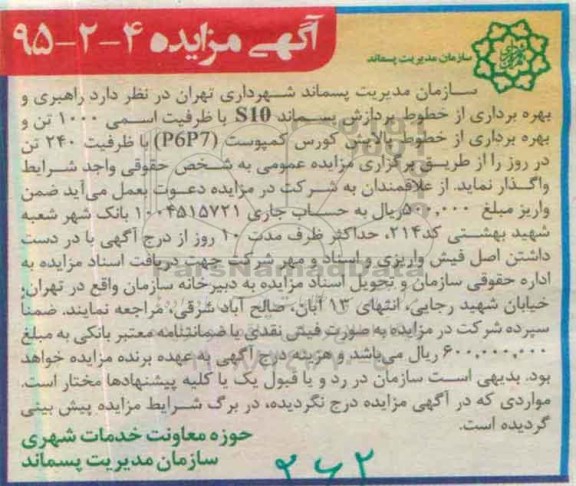 آگهی مزایده ۴-۲-۹۵
سازمان مدیریت پسماند
سازمان مدیریت پسماند شهرداری تهران در نظر دارد راهبری و
بهره برداری از خطوط پردازش پسماند S10 با ظرفیت اسمی ۱۰۰۰ تن و
بهره برداری از خطوط پالایش کورس کمپوست (P6P7) با ظرفیت ۲۴۰ تن
در روز را از طریق برگزاری مزایده عمومی به شخص حقوقی واجد شرایط
واگذار نماید. از علاقمندان به شرکت در مزایده دعوت بعمل می‌آید ضمن
واریز مبلغ ۵۰۰,۰۰۰ریال به حساب جاری ۱۰۰۴۵۱۵۷۲۱ بانک شهر شعبه
شهید بهشتی کد۲۱۴، حداکثر ظرف مدت ۱۰ روز از درج آگهی با در دست
داشتن اصل فیش واریزی و اسناد و مهر شرکت جهت دریافت اسناد مزایده به
اداره حقوقی سازمان و تحویل اسناد مزایده به دبیرخانه سازمان واقع در تهران،
خیابان شهید رجایی، انتهای ۱۳آبان، صالح آباد شرقی، مراجعه نمایند. ضمناً
سپرده شرکت در مزایده به صورت فیش نقدی یا ضمانتنامه معتبر بانکی به مبلغ
۶۰۰,۰۰۰,۰۰۰ ریال می‌باشد و هزینه درج آگهی به عهده برنده مزایده خواهد
بود. بدیهی است سازمان در رد و یا قبول یک یا کلیه پیشنهادها مختار است.
مواردی که در آگهی مزایده درج نگردیده، در برگ شرایط مزایده پیش بینی
گردیده است.
حوزه معاونت خدمات شهری
سازمان مدیریت پسماند
ParsNamadData